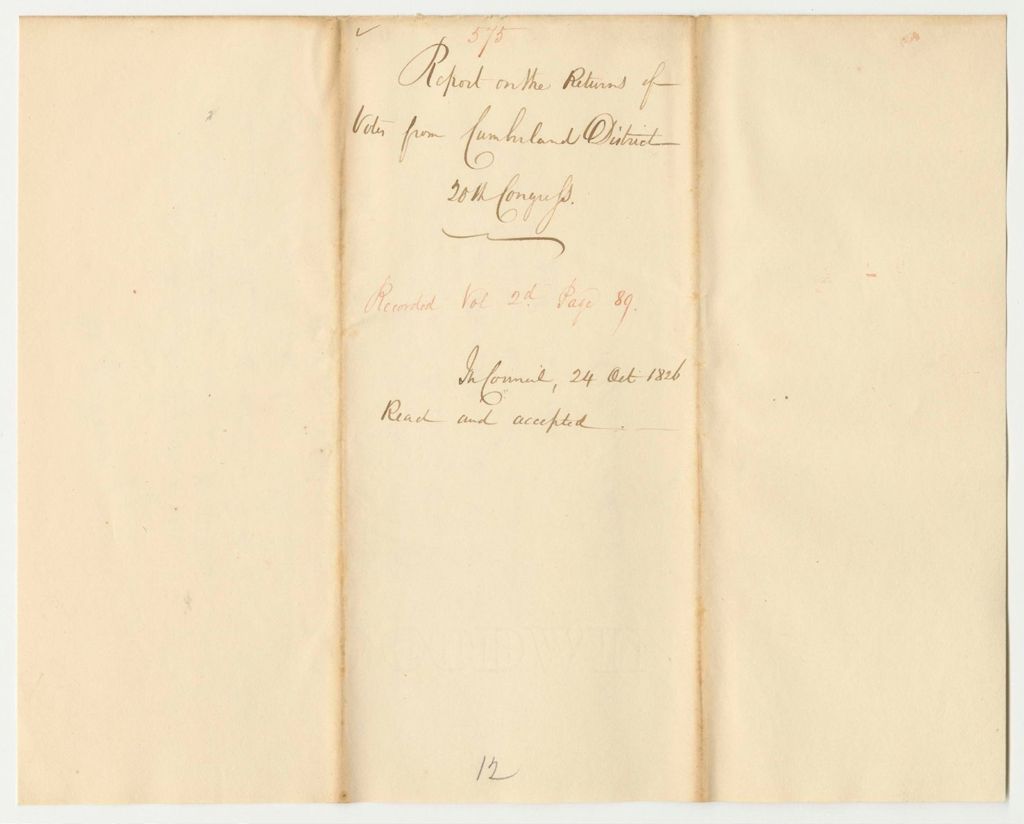 575
Report on the Returns of
Votes from Cumberland District
20th Congress.
Recorded Vol 2d. Page 89.
In Council, 24 Oct 1826
Read and accepted.
12